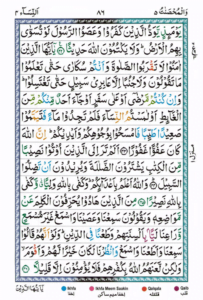 وَالْمُحْصَنٰتُ ٥ ٨٦ اَلنِّسَآء ٤
يَوْمَئِذٍ يَّوَدُّ الَّذِيْنَ كَفَرُوْا وَعَصَوُا الرَّسُوْلَ لَوْ تُسَوّٰى
بِهِمُ الْاَرْضُ ؕ وَلَا يَكْتُمُوْنَ اللّٰهَ حَدِيْثًا يٰۤاَيُّهَا الَّذِيْنَ
اٰمَنُوْا لَا تَقْرَبُوا الصَّلٰوةَ وَاَنْتُمْ سُكٰرٰى حَتّٰى تَعْلَمُوْا
مَا تَقُوْلُوْنَ وَلَا جُنُبًا اِلَّا عَابِرِيْ سَبِيْلٍ حَتّٰى تَغْتَسِلُوْا ؕ
وَاِنْ كُنْتُمْ مَّرْضٰۤى اَوْ عَلٰى سَفَرٍ اَوْ جَآءَ اَحَدٌ مِّنْكُمْ مِّنَ
الْغَآئِطِ اَوْ لٰمَسْتُمُ النِّسَآءَ فَلَمْ تَجِدُوْا مَآءً فَتَيَمَّمُوْا
صَعِيْدًا طَيِّبًا فَامْسَحُوْا بِوُجُوْهِكُمْ وَاَيْدِيْكُمْ ؕ اِنَّ اللّٰهَ
كَانَ عَفُوًّا غَفُوْرًا اَلَمْ تَرَ اِلَى الَّذِيْنَ اُوْتُوْا نَصِيْبًا
مِّنَ الْكِتٰبِ يَشْتَرُوْنَ الضَّلٰلَةَ وَيُرِيْدُوْنَ اَنْ تَضِلُّوا
السَّبِيْلَ وَاللّٰهُ اَعْلَمُ بِاَعْدَآئِكُمْ ؕ وَكَفٰى بِاللّٰهِ وَلِيًّا
وَّكَفٰى بِاللّٰهِ نَصِيْرًا مِنَ الَّذِيْنَ هَادُوْا يُحَرِّفُوْنَ الْكَلِمَ عَنْ
مَّوَاضِعِهٖ وَيَقُوْلُوْنَ سَمِعْنَا وَعَصَيْنَا وَاسْمَعْ غَيْرَ مُسْمَعٍ
وَّرَاعِنَا لَيًّۢا بِاَلْسِنَتِهِمْ وَطَعْنًا فِي الدِّيْنِ ؕ وَلَوْ اَنَّهُمْ قَالُوْا
سَمِعْنَا وَاَطَعْنَا وَاسْمَعْ وَانْظُرْنَا لَكَانَ خَيْرًا لَّهُمْ وَاَقْوَمَ
وَلٰكِنْ لَّعَنَهُمُ اللّٰهُ بِكُفْرِهِمْ فَلَا يُؤْمِنُوْنَ اِلَّا قَلِيْلًا
Ikhfa Ikhfa Meem Saakin Qalqala Qalb